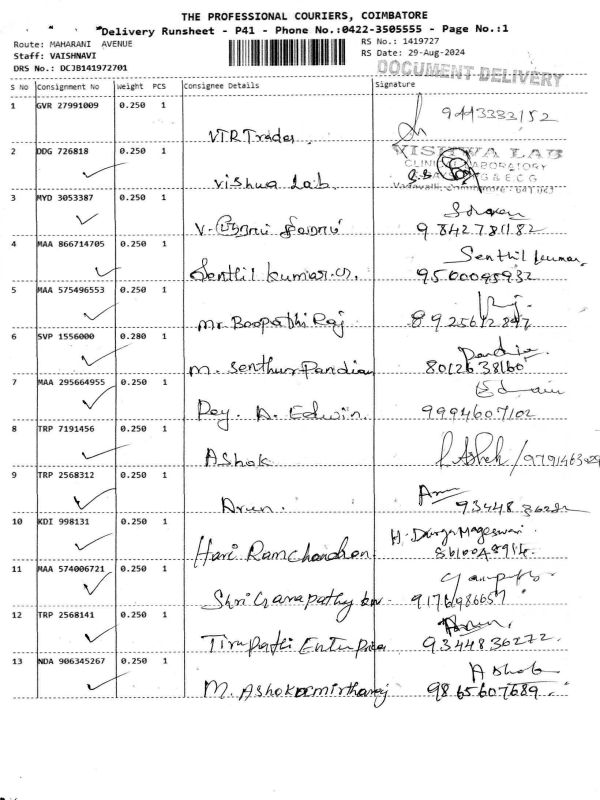 THE PROFESSIONAL COURIERS, COIMBATORE
Delivery Runsheet - P41 - Phone No.:0422-3505555 - Page No.:1
Route: MAHARANI AVENUE
RS No.: 1419727
Staff: VAISHNAVI
RS Date: 29-Aug-2024
DRS No.: DCJB141972701
DOCUMENT DELIVERY
S No Consignment No Weight PCS Consignee Details Signature
1 GVR 27991009 0.250 1
9443332152
VTR Trades
2 DDG 726818 0.250 1
VISHWA LAB
CLINICAL LABORATORY
Vishwa Lab
3 MYD 3053387 0.250 1
9842781182
4 MAA 866714705 0.250 1
Senthil kumar
Senthil kumar 9500095932
5 MAA 575496553 0.250 1
Mr Boopathi Raj 8925612847
6 SVP 1556000 0.280 1
M. Senthur Pandian 8012638160
7 MAA 295664955 0.250 1
Edwin
Rey. A. Edwin. 9994607102
8 TRP 7191456 0.250 1
Ashok
9 TRP 2568312 0.250 1
Arun
Arun.
10 KDI 998131 0.250 1
H. Durga Mageswari
Hari Ramchandran
11 MAA 574006721 0.250 1
Shri Ganapathy 9176986657
12 TRP 2568141 0.250 1
Arun
Tirupathi Enterprices 9344836272.
13 NDA 906345267 0.250 1
Ashok
M. Ashokamirtharaj 9865607689.